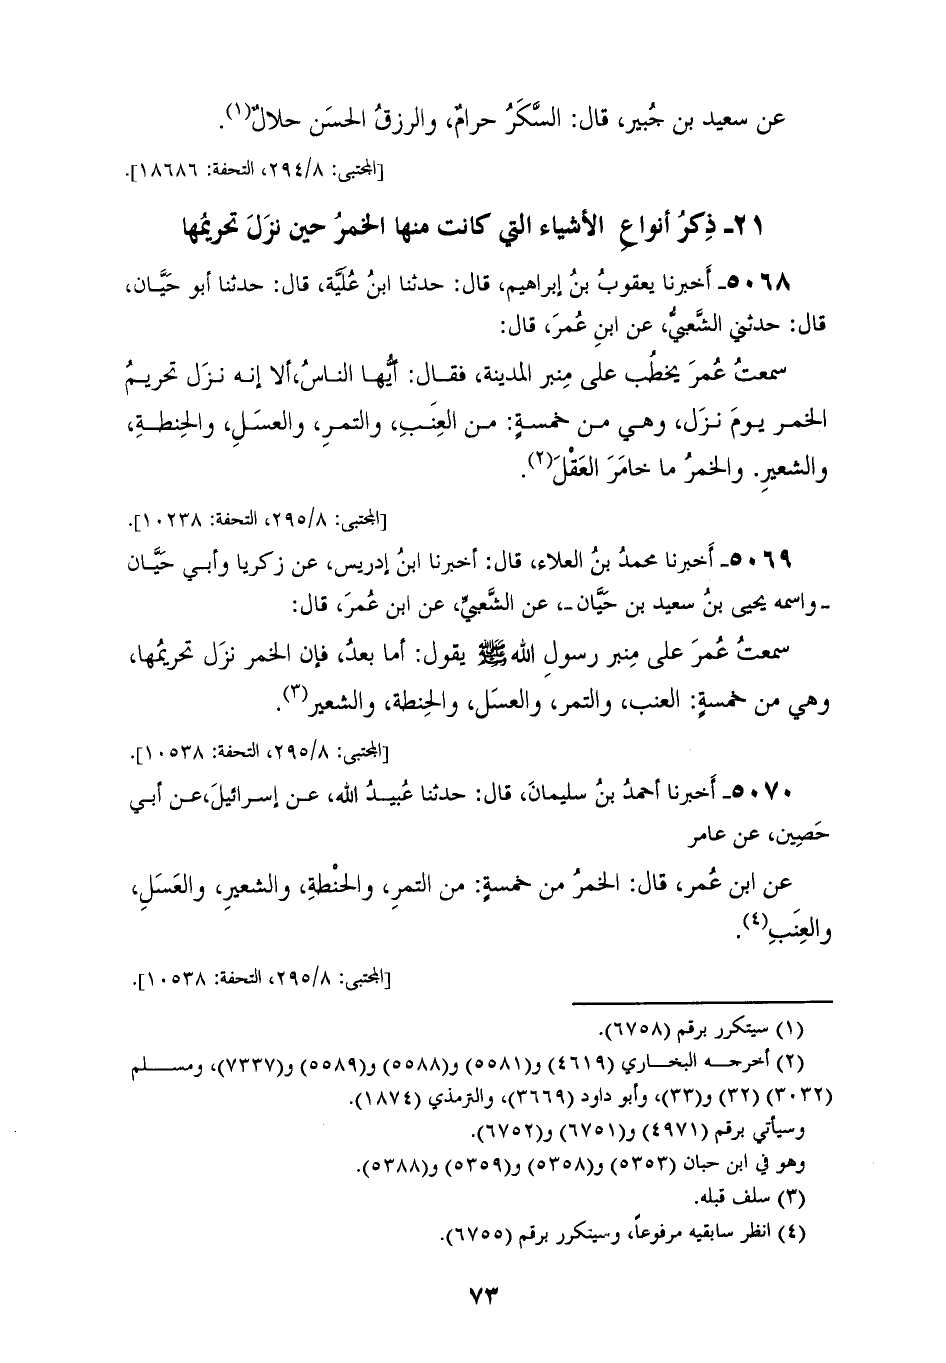 عن سعيد بن جُبير، قال: السَّكَرُ حرامٌ، والرزقُ الحسَن حلالٌ(١).
[المجتبى: ٢٩٤/٨، التحفة: ١٨٦٨٦].
٢١ـ ذِكرُ أنواعِ الأشياء التي كانت منها الخمرُ حين نزَلَ تحريمُها
٥٠٦٨ـ أَخبرنا يعقوبُ بنُ إبراهيم، قال: حدثنا ابنُ عُلَيَّة، قال: حدثنا أبو حَيَّـان،
قال: حدثني الشَّعبيُّ، عن ابنِ عُمرَ، قال:
سمعتُ عُمرَ يخطُب على مِنبر المدينة، فقـال: أيُّهـا النـاسُ،ألا إنـه نـزَلَ تحريـمُ
الخمـر يـومَ نـزَل، وهـي مـن خمسـةٍ: مـن العِنَـبِ، والتمـرِ، والعسَـلِ، والحِنطـةِ،
والشعيرِ. والخمرُ ما خامَرَ العَقْلَ(٢).
[المجتبى: ٢٩٥/٨، التحفة: ١٠٢٣٨].
٥٠٦٩ـ أَخبرنا محمدُ بنُ العلاء، قال: أخبرنا ابنُ إدريس، عن زكريا وأبـي حَيَّـان
ـ واسمه يحيى بنُ سعيد بن حَيَّان ـ، عن الشَّعبيِّ، عن ابن عُمرَ، قال:
سمعتُ عُمرَ على مِنبر رسولِ الله ﷺ يقول: أما بعدُ، فإن الخمر نزَل تحريمُها،
وهي من خمسةٍ: العنب، والتمر، والعسَل، والحِنطة، والشعير(٣).
[المجتبى: ٢٩٥/٨، التحفة: ١٠٥٣٨].
٥٠٧٠ـ أَخبرنا أحمدُ بنُ سليمانَ، قال: حدثنا عُبيـدُ الله، عـن إسـرائيلَ،عـن أبـي
حَصِين، عن عامر
عن ابن عُمر، قال: الخمرُ من خمسةٍ: من التمرِ، والحنْطةِ، والشعيرِ، والعَسَلِ،
والعِنَبِ(٤).
[المجتبى: ٢٩٥/٨، التحفة: ١٠٥٣٨].
(١) سيتكرر برقم (٦٧٥٨).
(٢) أخرجـه البخـاري (٤٦١٩) و(٥٥٨١) و(٥٥٨٨) و(٥٥٨٩) و(٧٣٣٧)، ومسـلم
(٣٠٣٢) (٣٢) و(٣٣)، وأبو داود (٣٦٦٩)، والترمذي (١٨٧٤).
وسيأتي برقم (٤٩٧١) و(٦٧٥١) و(٦٧٥٢).
وهو في ابن حبان (٥٣٥٣) و(٥٣٥٨) و(٥٣٥٩) و(٥٣٨٨).
(٣) سلف قبله.
(٤) انظر سابقيه مرفوعاً، وسيتكرر برقم (٦٧٥٥).
٧٣